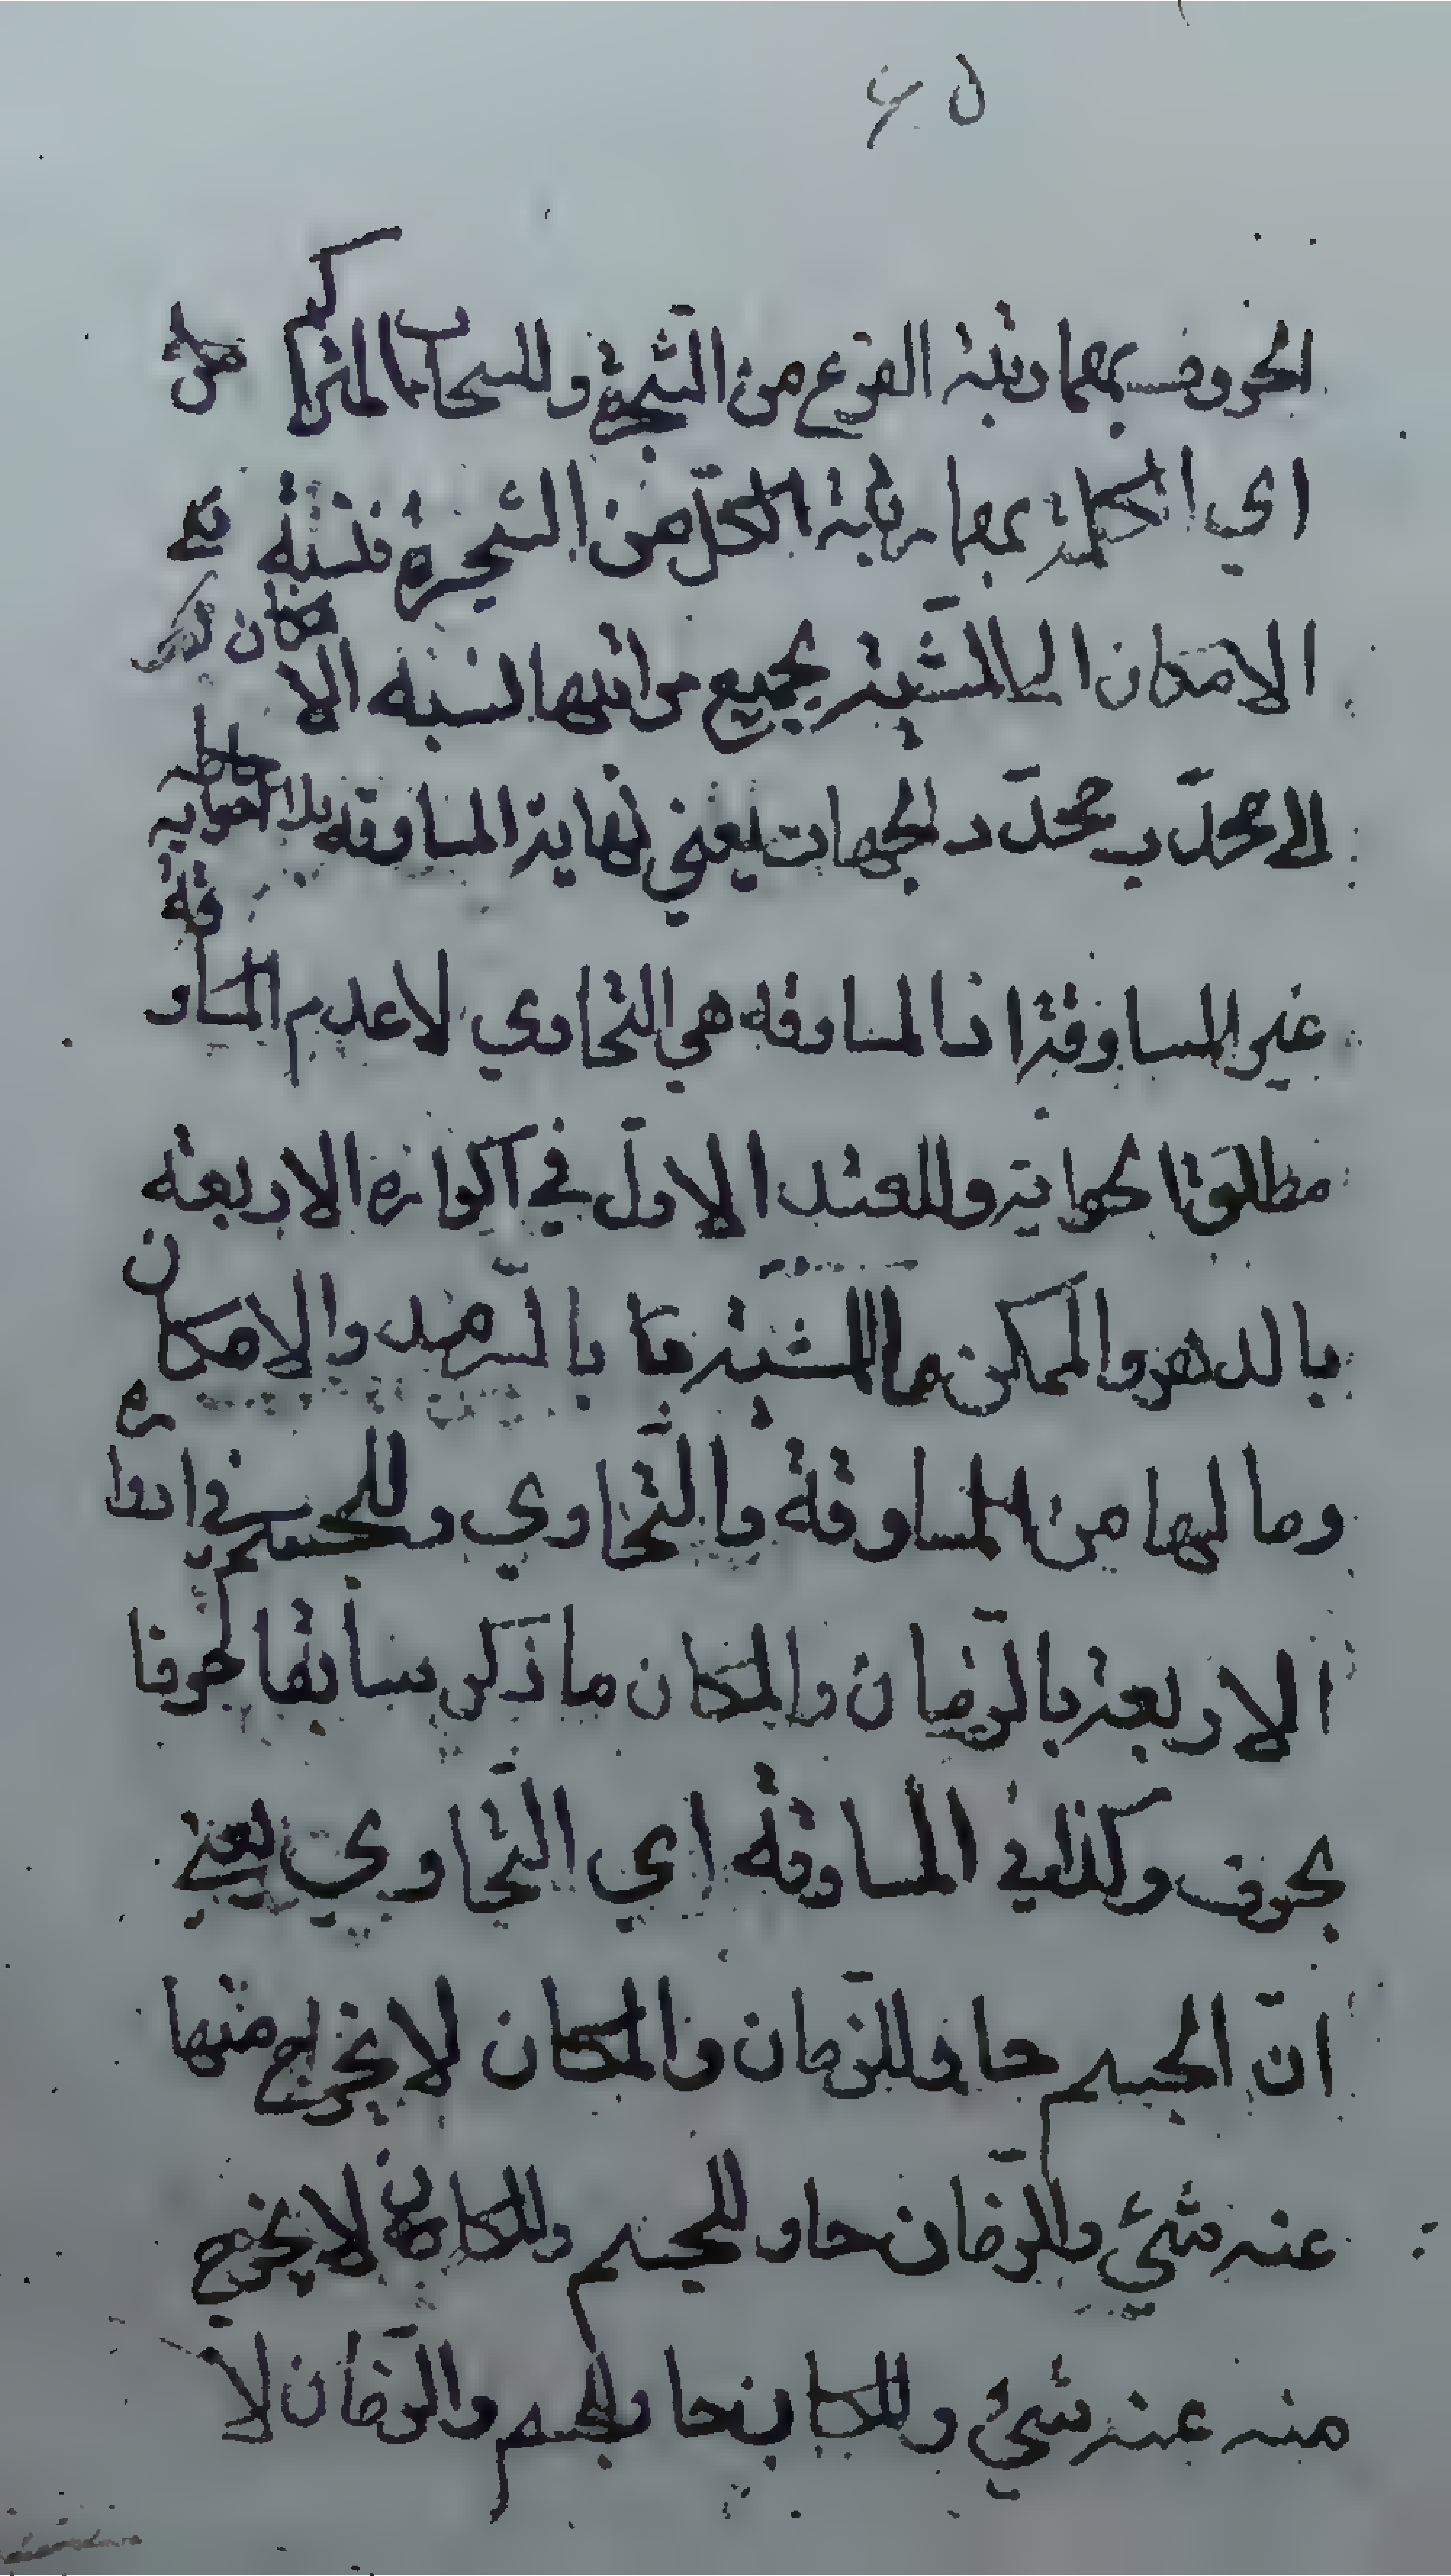 ٤٥
الحروف بمعما رتبة الفرع من الشجرة والسحاب المتراكم من
اي الكلمة بمعما رتبة الكل من الشجرة فنسبة
الامكان الى المشية بجميع مراتبها نسبة الامكان
لا محدب محدد الجهات يعني نهاية المساوقة بلا احاطه
غير المساوقة اذا المساوقه هي التحاوي لا عدم المساوقة
مطلق الحواية وللعقد الاول في اكوانه الاربعة
بالدهر والممكن ما للمشية بالسرمد والامكان
وما ليها من المساوقة والتحاوي وللجسم في ادواره
الاربعة بالزمان والمكان ما ذكر سابقا حرفا
بحرف وكذا في المساوقة اي التحاوي يعني
انّ الجسم حاو للزمان والمكان لا يخرج منها
عنه شيئ والزمان حاو للجسم والمكان لا يخرج
منه عنه شيئ والمكان حاو للجسم والزمان لا